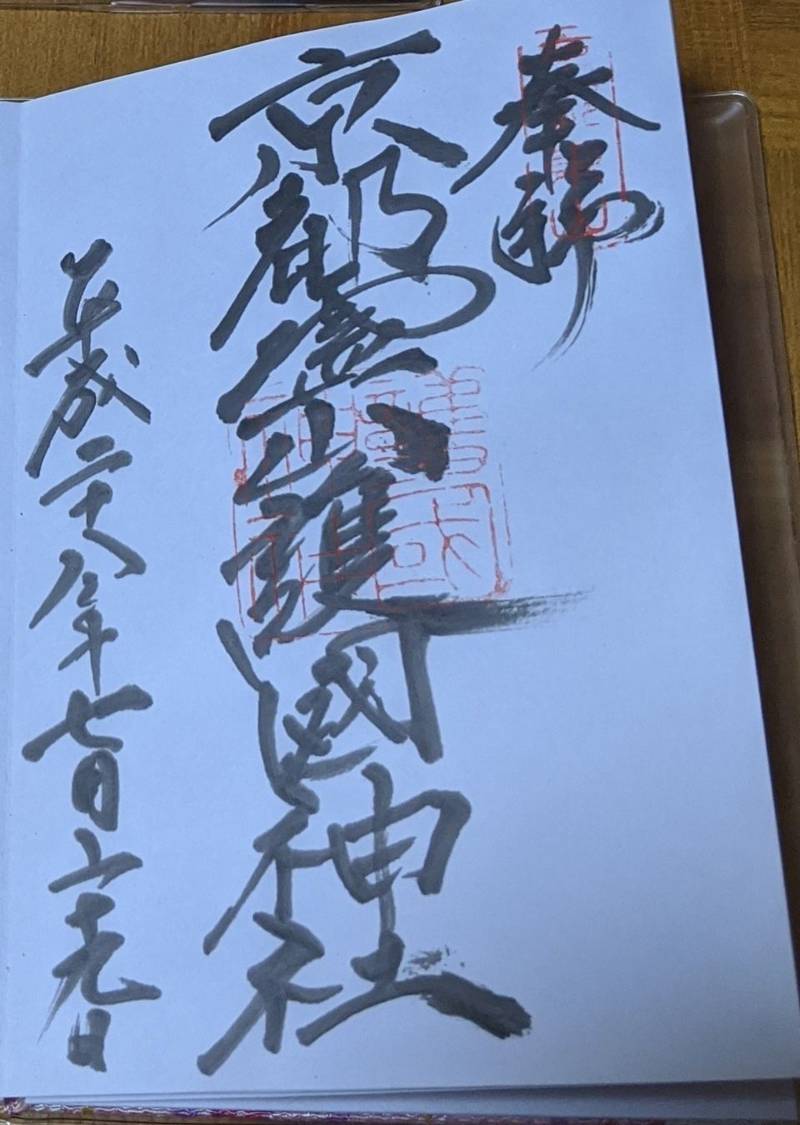 奉拝
京都霊山護國神社
平成二十八年七月二十九日